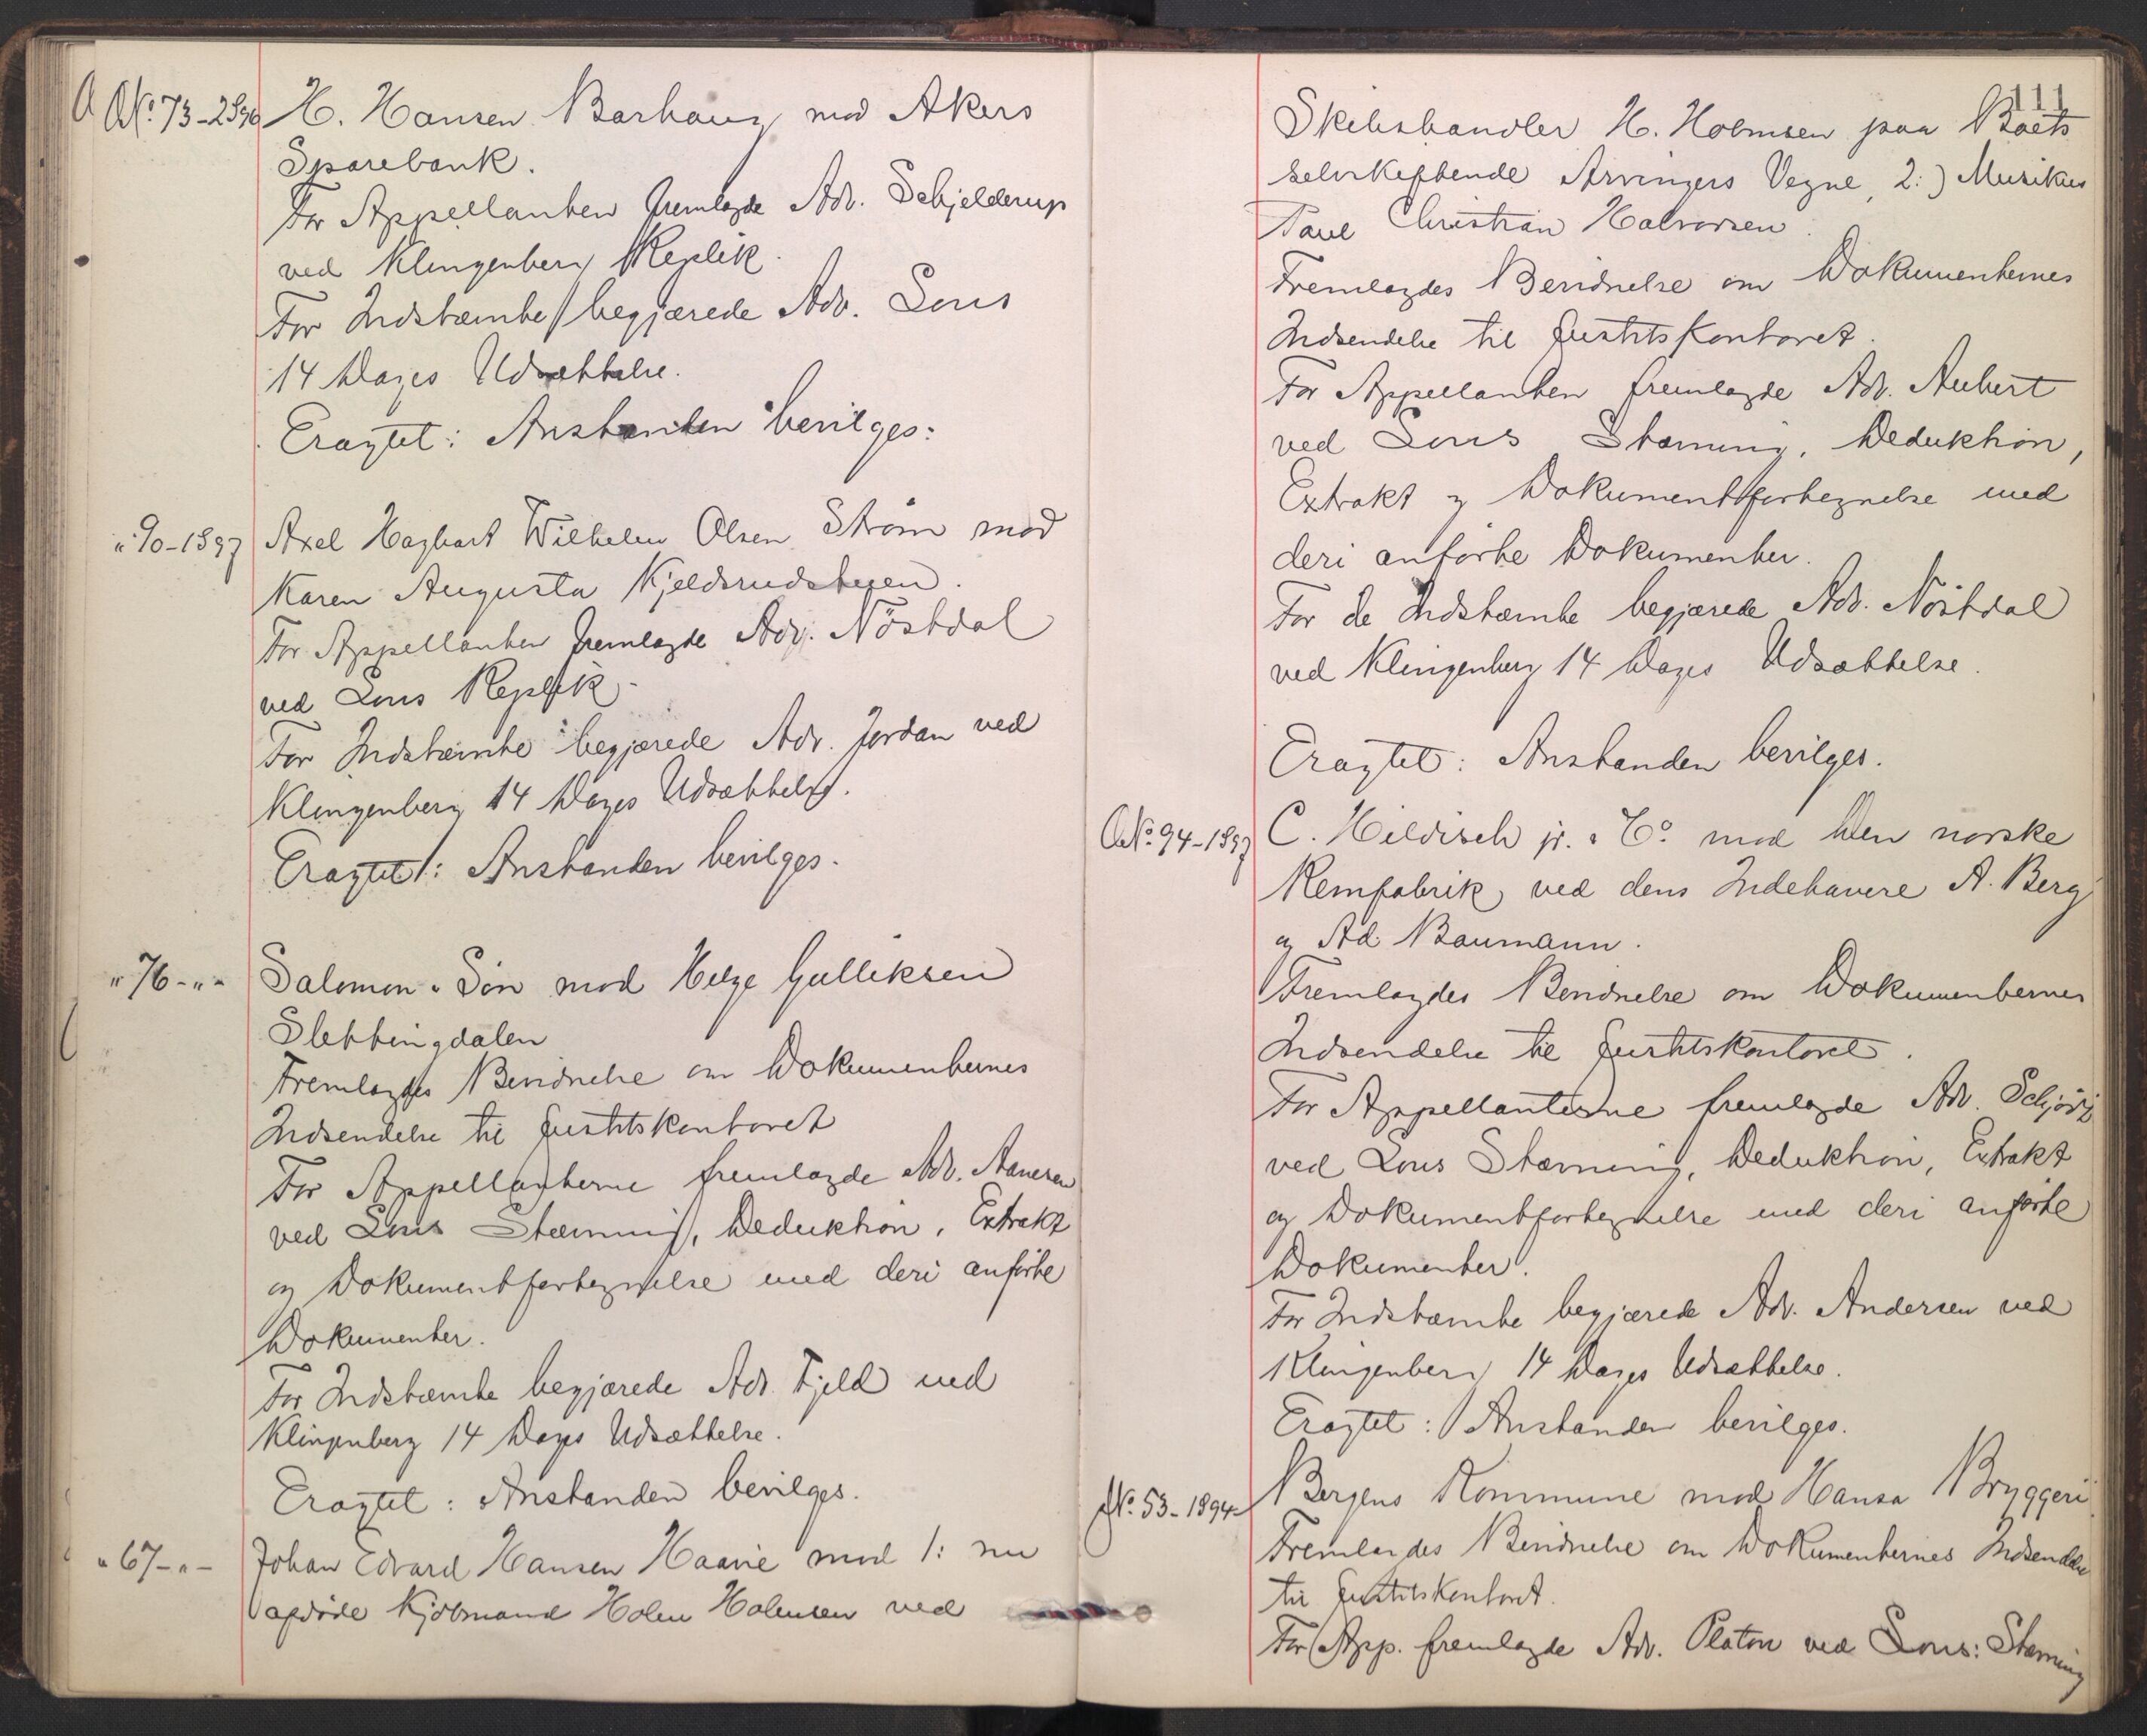 No. 73-2896 H. Hansen Barhaug mod Akers
Sparebank.
For Appellanten fremlagde Adv. Schjelderup
ved Klingenberg Replik.
For Indstæmte begjærede Adv. Lous
14 Dages Udsættelse.
Eragtet: Anstanden bevilges.
" 90-1897 Axel Hagbart Wilhelm Olsen Strøm mod
Karen Augusta Kjeldsrudstuen.
For Appellanten fremlagde Adv. Nöstdal
ved Lous Replik.
For Indstæmte begjærede Adv. Jordan ved
Klingenberg 14 Dages Udsættelse.
Eragtet: Anstanden bevilges.
" 76-"- Salomon & Søn mod Helge Gulliksen
Slettingdalen
Fremlagdes Bevidnelse om Dokumenternes
Indsendelse til Justitskontoret
For Appellanterne fremlagde Adv. Aanesen
ved Lous Stævning, Deduktion, Extrakt
og Dokumentfortegnelse med deri anförte
Dokumenter.
For Indstæmte begjærede Adv. Fjeld ved
Klingenberg 14 Dages Udsættelse.
Eragtet: Anstanden bevilges.
" 67-"- Johan Edvard Hansen Haavie mod 1: nu
afdöde Kjöbmand Holm Holmsen ved
111
Skibshandler H. Holmsen paa Boets
selvskiftende Arvingers Vegne, 2:) Musikus
Paul Christian Halvorsen.
Fremlagdes Bevidnelse om Dokumenternes
Indsendelse til Justitskontoret.
For Appellanten fremlagde Adv. Aubert
ved Lous Stævning, Deduktion,
Extrakt og Dokumentfortegnelse med
deri anförte Dokumenter.
For de Indstæmte begjærede Adv. Nöstdal
ved Klingenberg 14 Dages Udsættelse.
Eragtet: Anstanden bevilges.
No. 94-1897 C. Hildisch jr. & Co mod Den norske
Remfabrik ved dens Indehavere A. Berg
og Ad. Baumann.
Fremlagdes Bevidnelse om Dokumenternes
Indsendelse til Justitskontoret.
For Appellanterne fremlagde Adv. Schjött
ved Lous Stævning, Deduktion, Extrakt
og Dokumentfortegnelse med deri anförte
Dokumenter.
For Indstæmte begjærede Adv. Andersen ved
Klingenberg 14 Dages Udsættelse.
Eragtet: Anstanden bevilges.
No. 53-1894 Bergens Kommune mod Hansa Bryggeri
Fremlagdes Bevidnelse om Dokumenternes Indsendelse
til Justitskontoret.
For App. fremlagde Adv. Platou ved Lous: Stævning